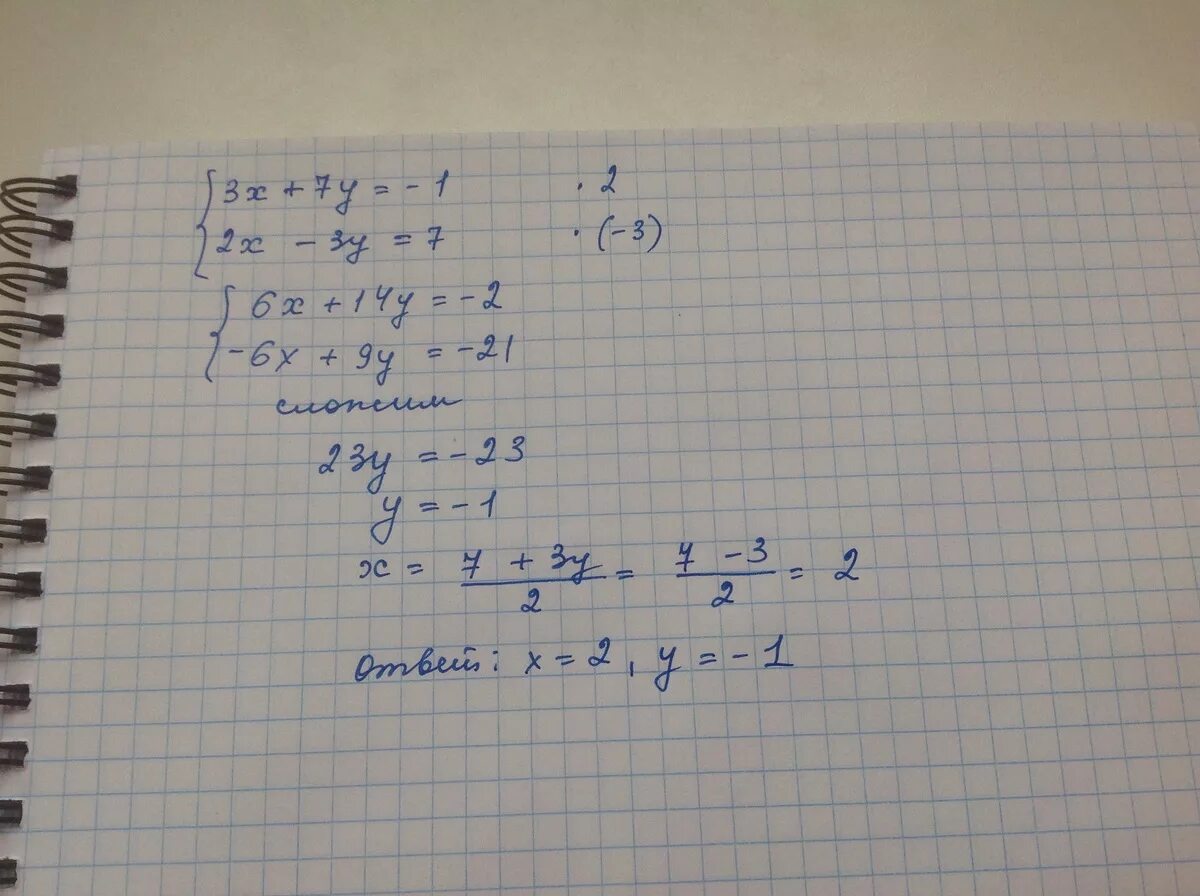 { 3x + 7y = - 1 · 2
2x - 3y = 7 · (-3)
{ 6x + 14y = - 2
-6x + 9y = -21
сложим
23y = - 23
y = - 1
x = (7 + 3y)/2 = (7 - 3)/2 = 2
ответ: x = 2, y = - 1